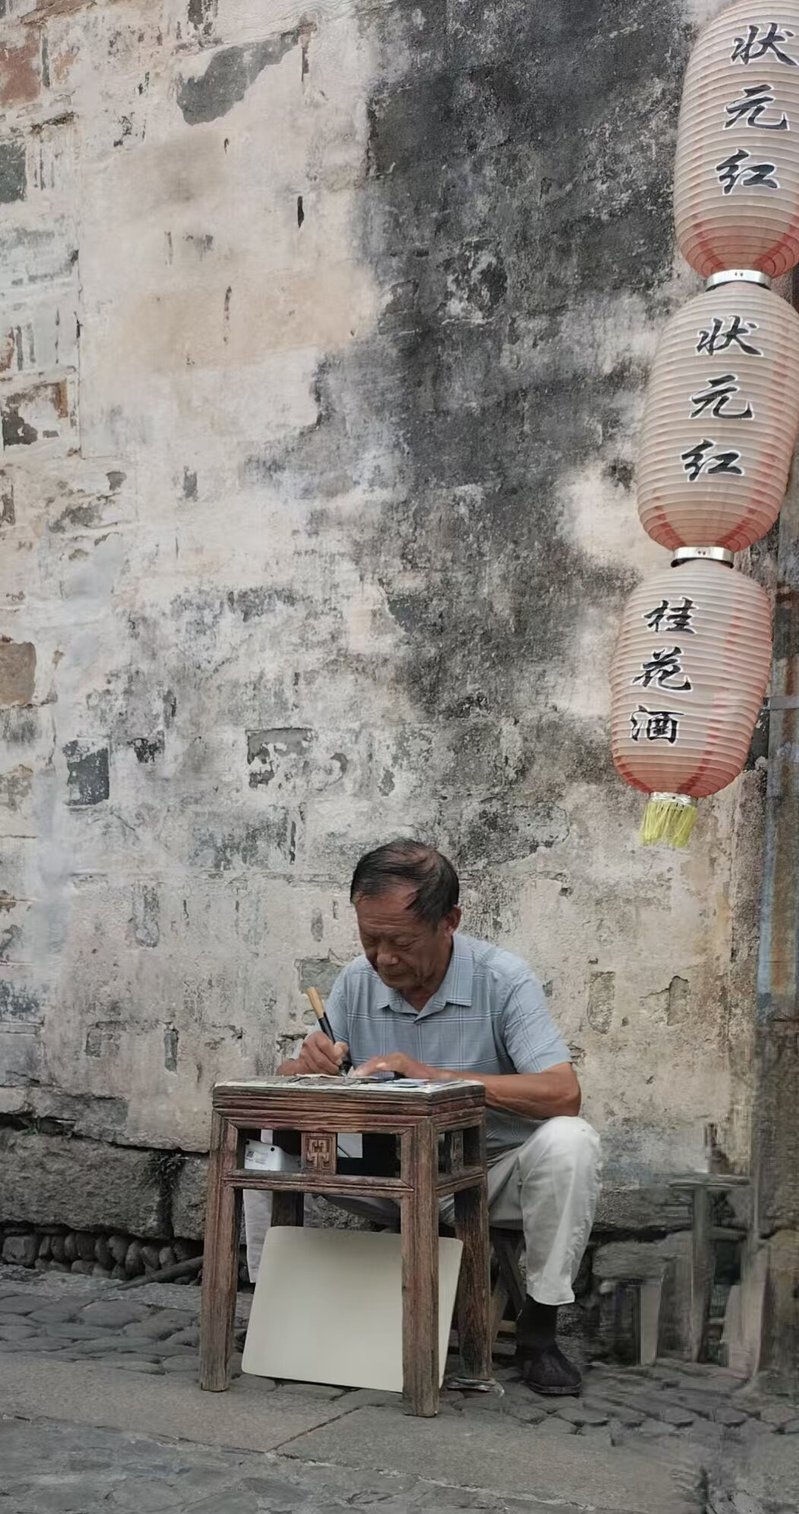 状元红
状元红
桂花酒